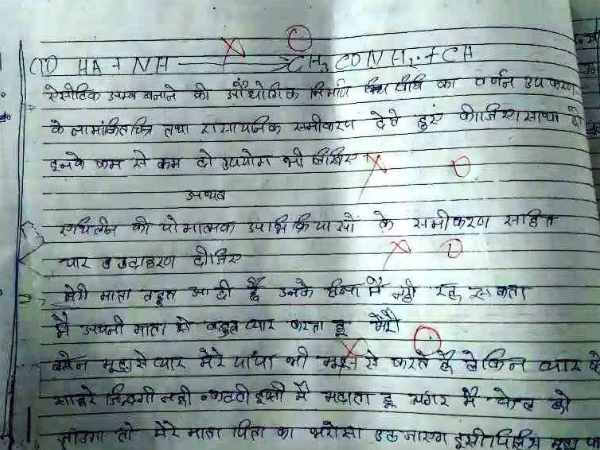 (ii) HA + NH ⟶ CH₃ CONH₂ + CH
ऐसीटिक अम्ल बनाने की औधोगिक निर्माण विधि का वर्णन उपकरण
के नामांकित चित्र तथा रासायनिक समीकरण देते हुए कीजिए साथ ही
इनके कम से कम दो उपयोग भी लिखिए
अथवा
एथिलीन की योगात्मक अभिक्रियाओं के समीकरण सहित
चार उदाहरण दीजिए
मेरी माता बहुत अच्छी है उनके बिना मैं नही रह सकता
मै अपनी माता से बहुत प्यार करता हू मेरी
बहन मुझसे प्यार मेरे पापा भी मुझसे से करते है लेकिन प्यार के
सहारे जिंदगी नही कटती इसी मै पढता हू अगर मै फेल हो
जाउंगा तो मेरे माता पिता का भरोसा उठ जाएगा इसीलिए मुझे पा